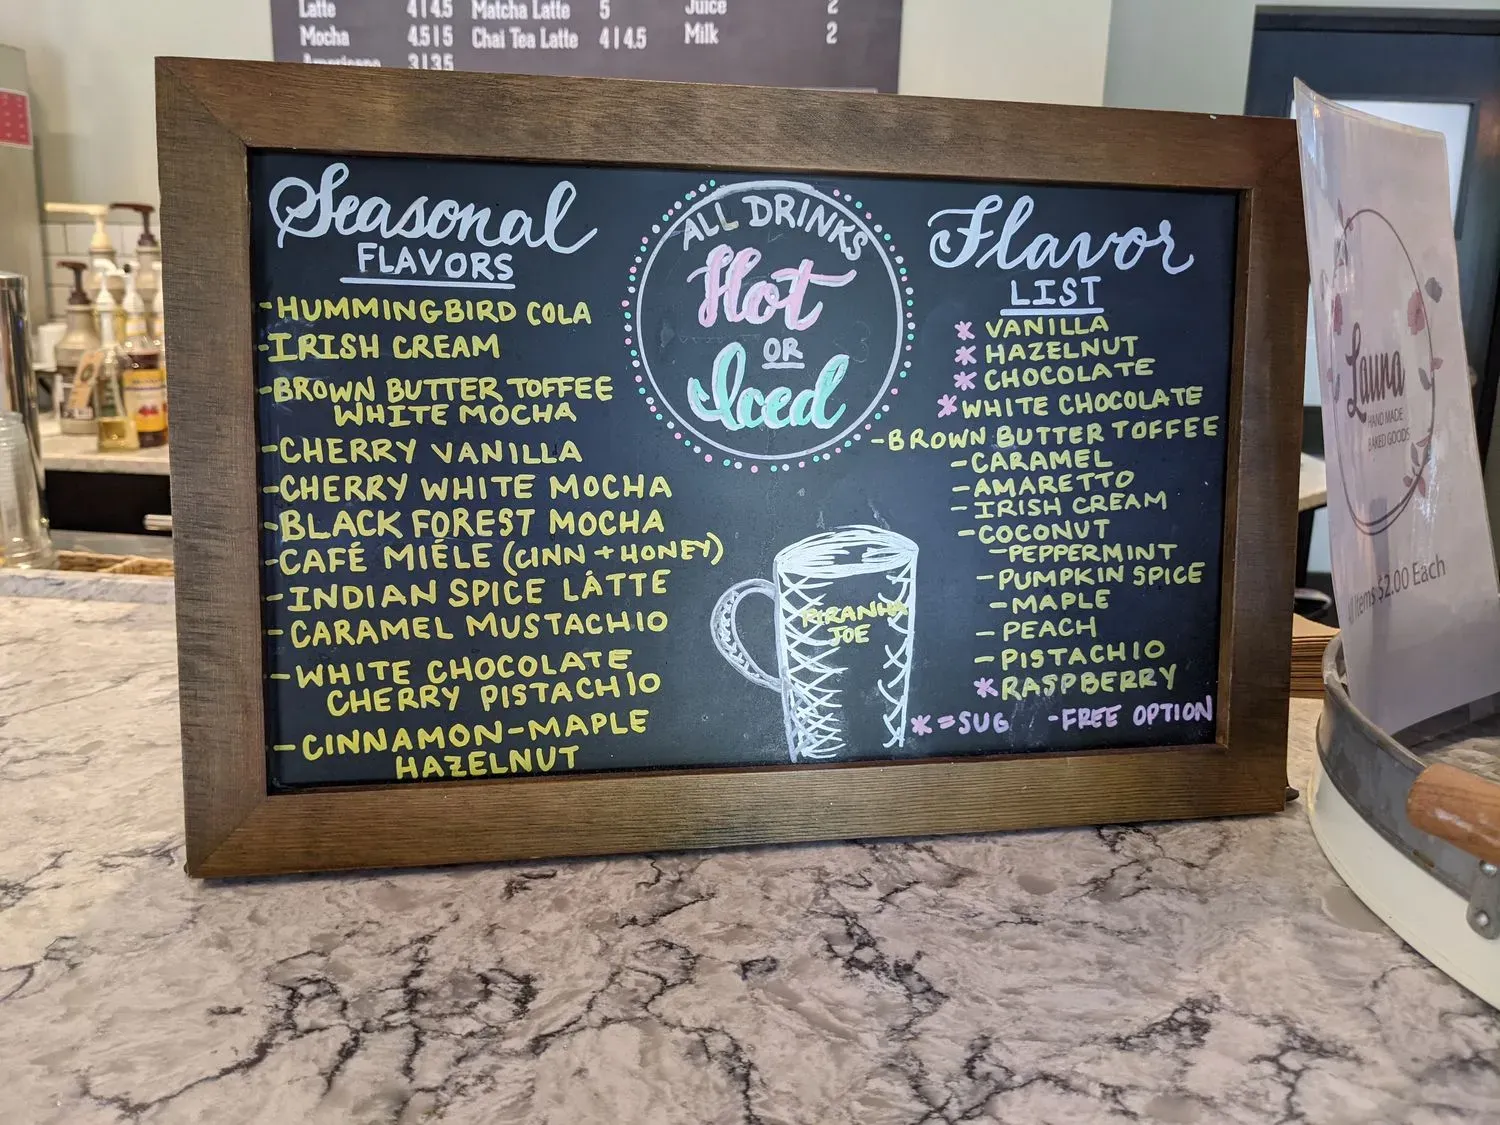 Latte 4 | 4.5 Matcha Latte 5 Juice 2
Mocha 4.5 | 5 Chai Tea Latte 4 | 4.5 Milk 2
Americano 3 | 3.5
Seasonal
FLAVORS
-HUMMINGBIRD COLA
-IRISH CREAM
-BROWN BUTTER TOFFEE
WHITE MOCHA
-CHERRY VANILLA
-CHERRY WHITE MOCHA
-BLACK FOREST MOCHA
-CAFÉ MIÉLE (CINN + HONEY)
-INDIAN SPICE LATTE
-CARAMEL MUSTACHIO
-WHITE CHOCOLATE
CHERRY PISTACHIO
-CINNAMON-MAPLE
HAZELNUT
ALL DRINKS
Hot
OR
Iced
PIRANHA
JOE
Flavor
LIST
* VANILLA
* HAZELNUT
* CHOCOLATE
* WHITE CHOCOLATE
-BROWN BUTTER TOFFEE
-CARAMEL
-AMARETTO
-IRISH CREAM
-COCONUT
-PEPPERMINT
-PUMPKIN SPICE
-MAPLE
-PEACH
-PISTACHIO
*RASPBERRY
* = SUG -FREE OPTION
Launa
HAND MADE
BAKED GOODS
All Items $2.00 Each